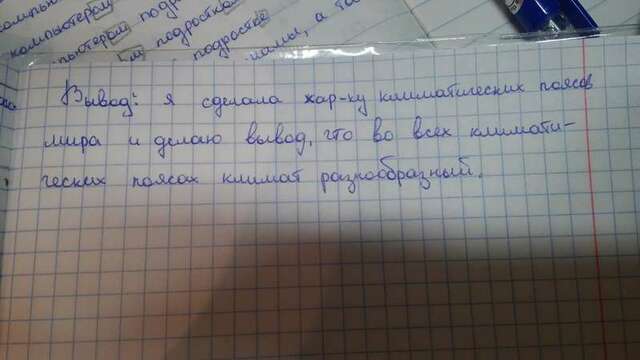 компьютером подро
компьютером подростка
пьютером подростке
ом подростке мамы, а та
Вывод: я сделала хар-ку климатических поясов
мира и делаю вывод, что во всех климати-
ческих поясах климат разнообразный.